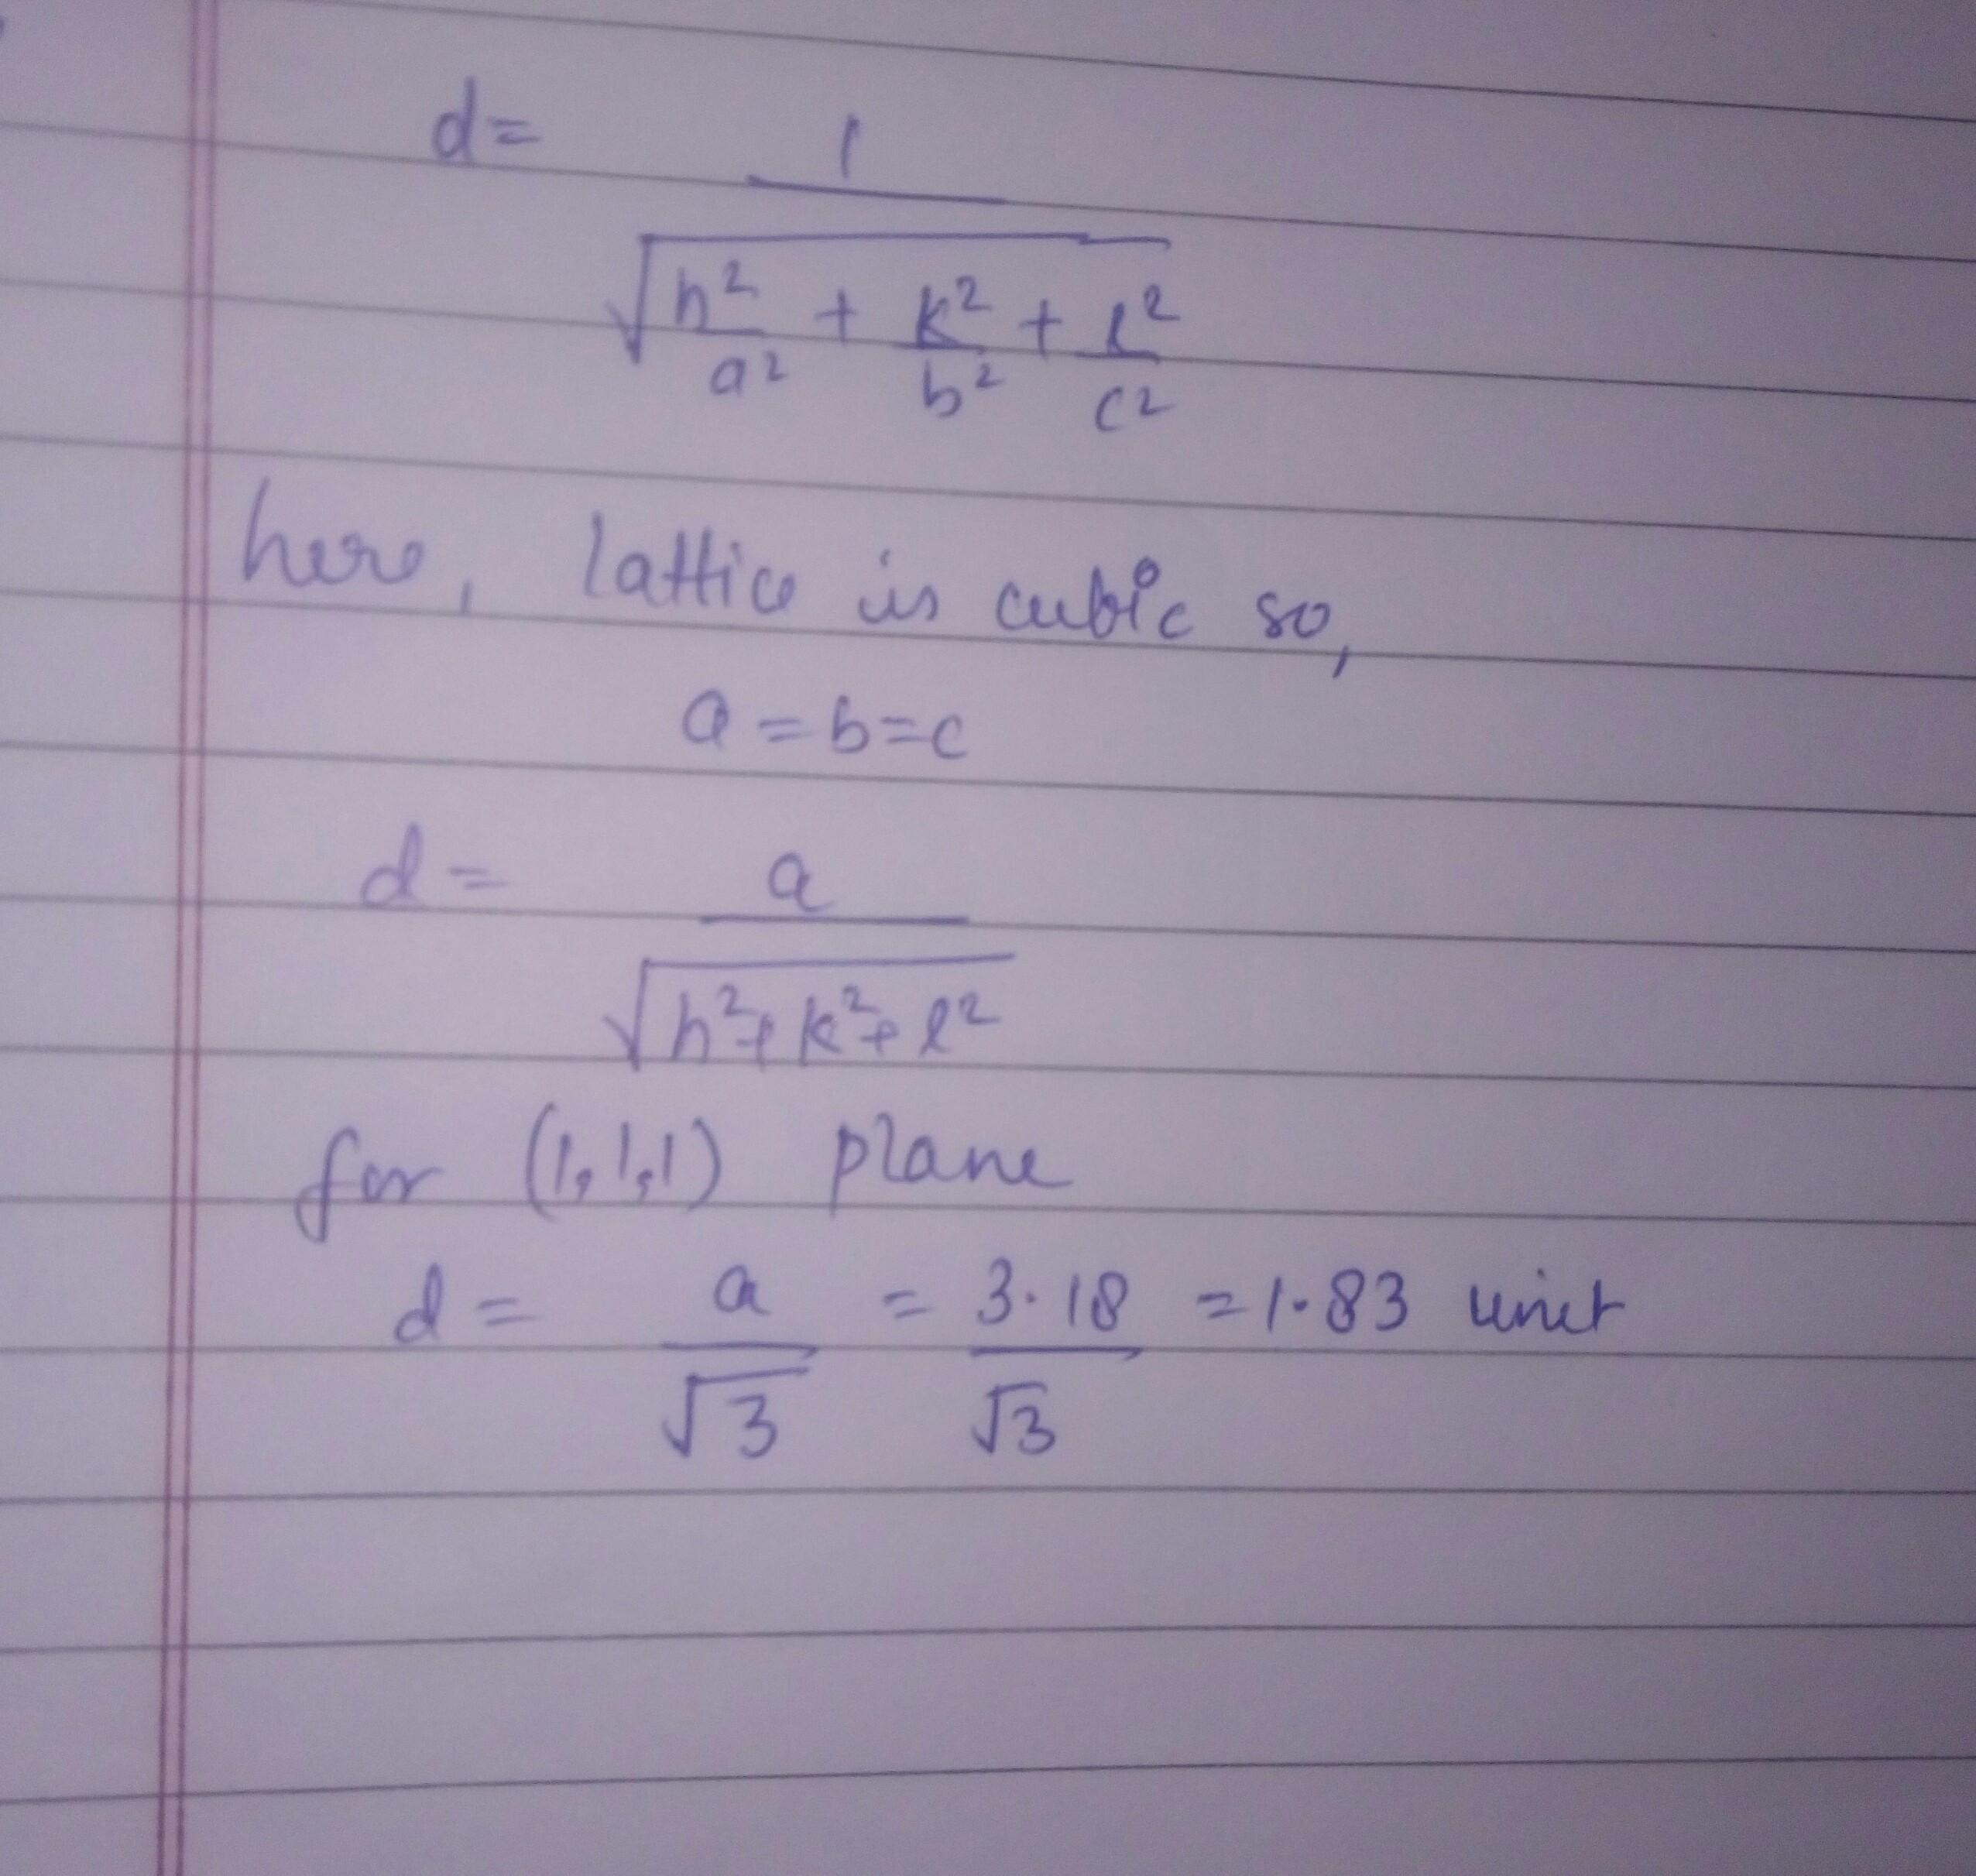 d= 1
√h²/a² + k²/b² + l²/c²
here, lattice is cubic so,
a=b=c
d= a
√h²+k²+l²
for (1,1,1) plane
d= a/√3 = 3.18/√3 =1.83 unit